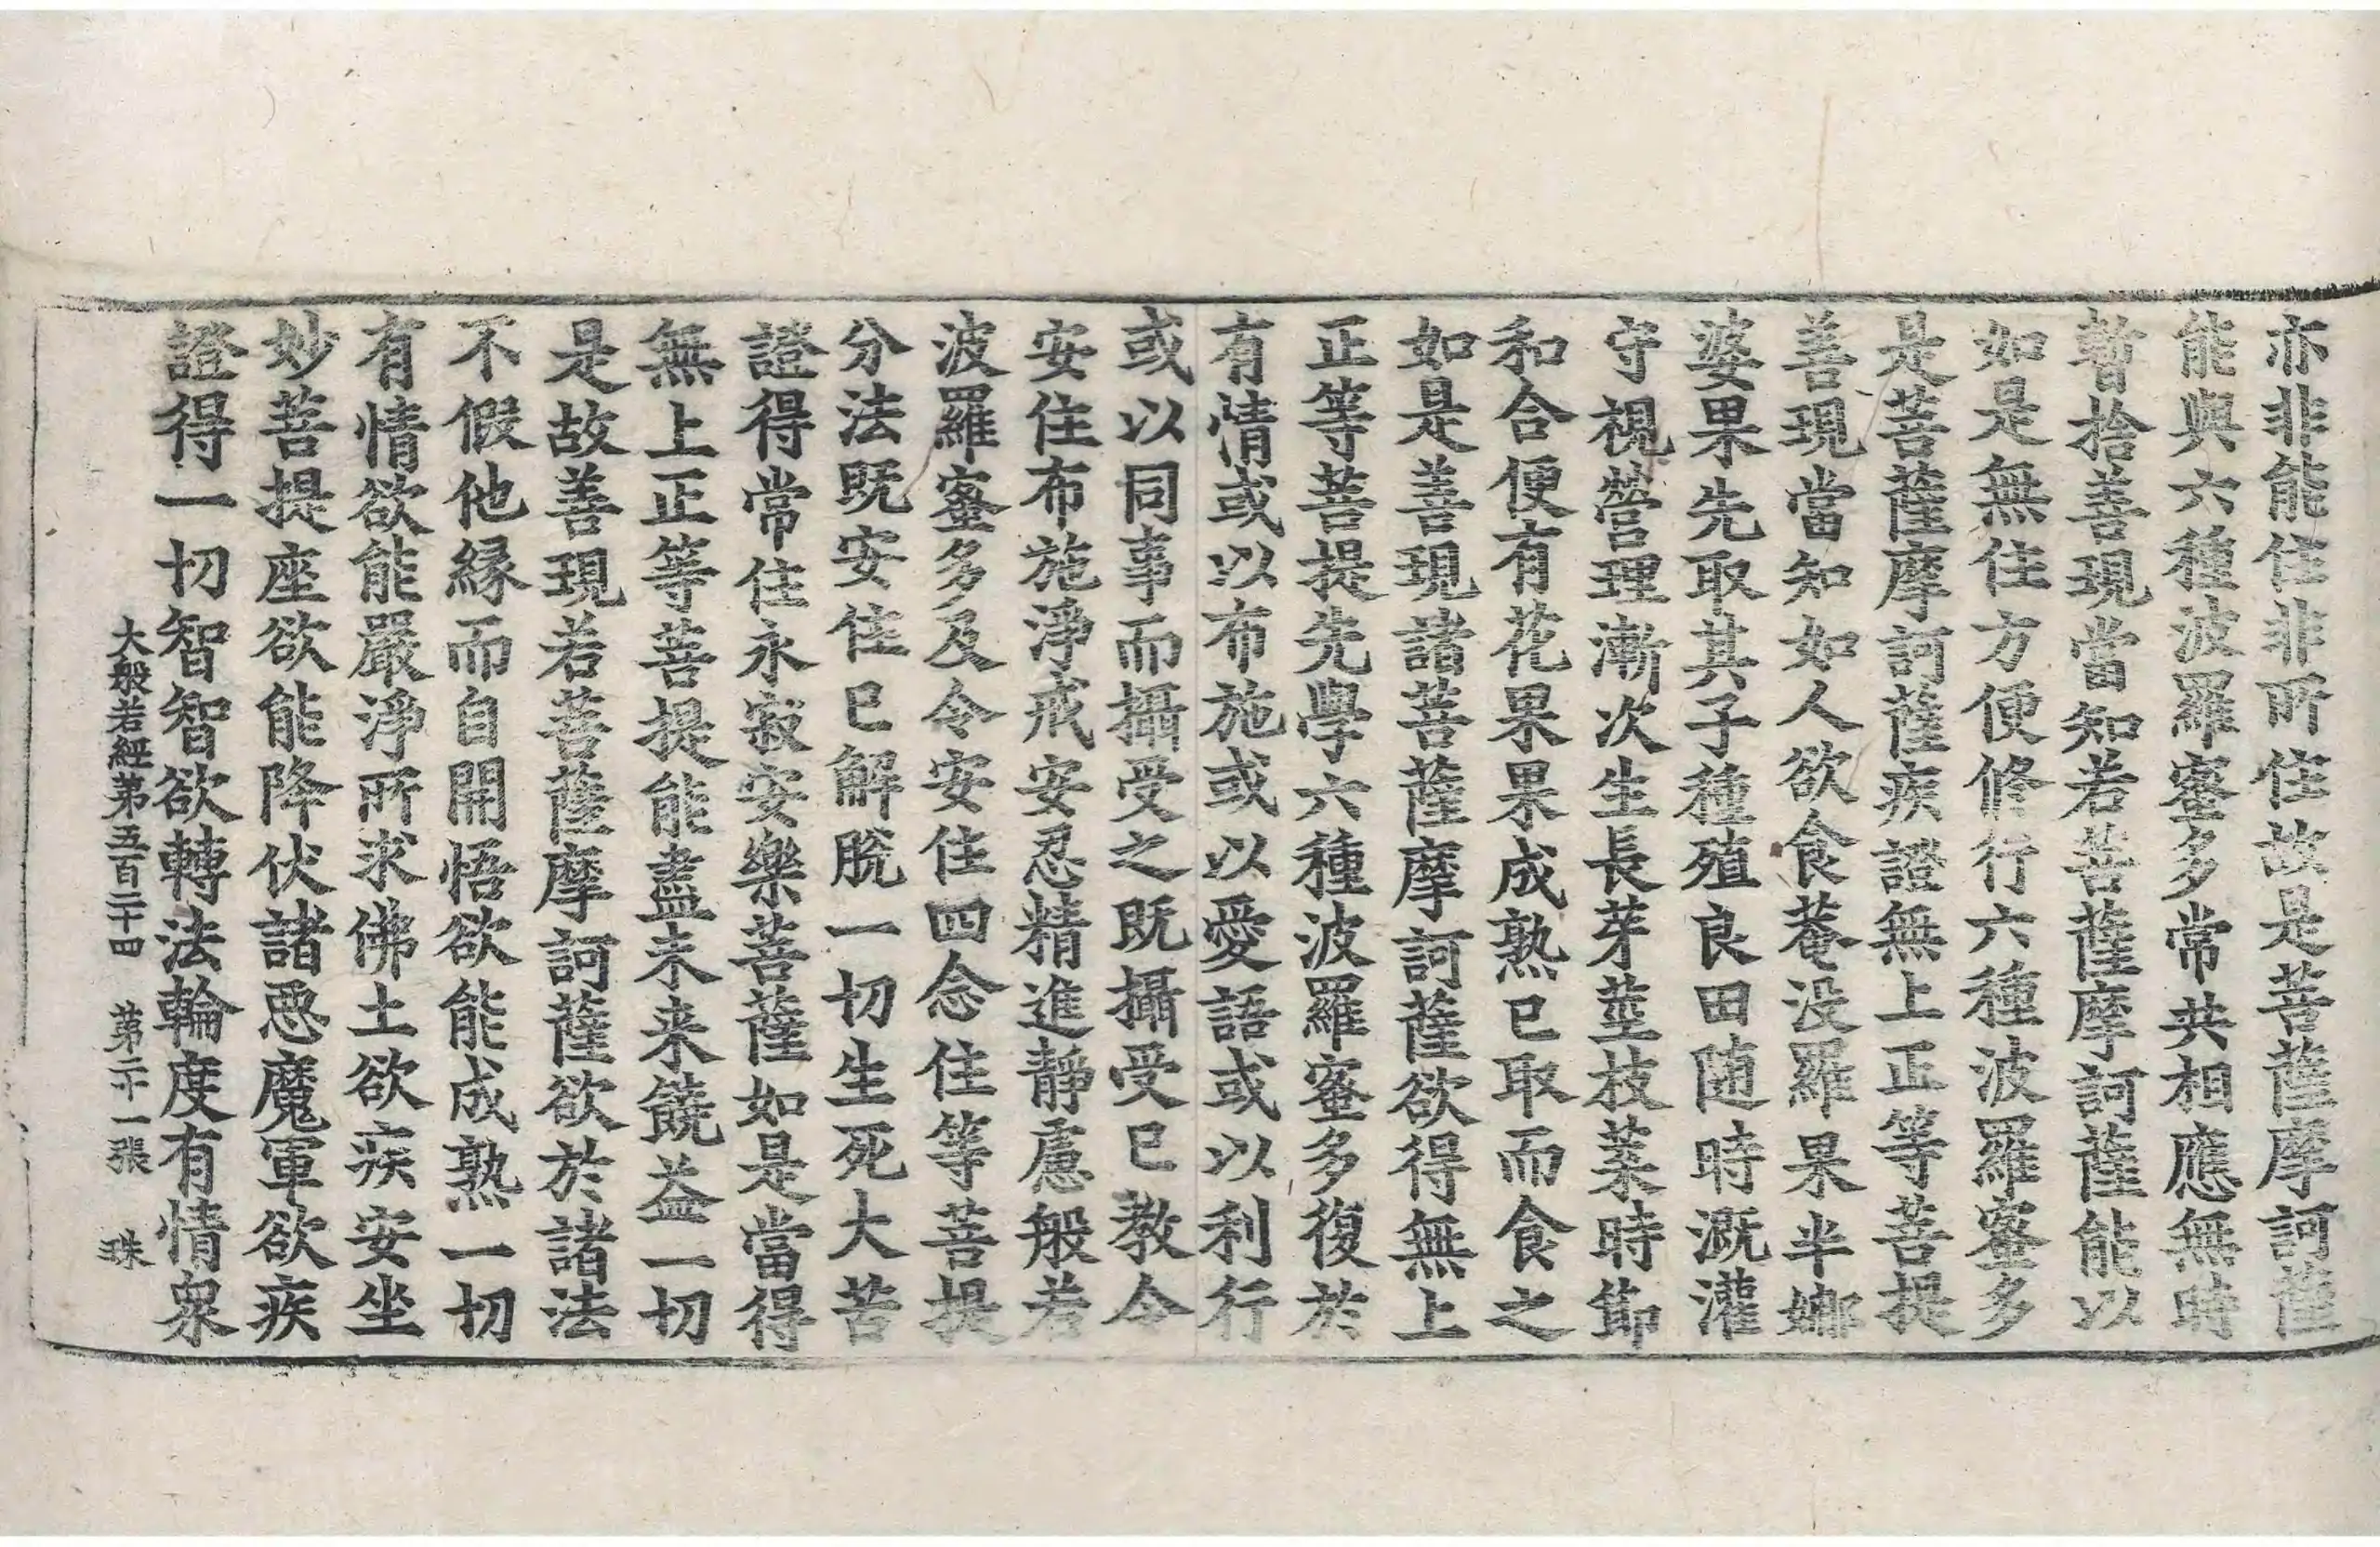 亦非能住非所住故是菩薩摩訶薩
能與六種波羅蜜多常共相應無時
暫捨善現當知若菩薩摩訶薩能以
如是無住方便修行六種波羅蜜多
是菩薩摩訶薩疾證無上正等菩提
善現當知如人欲食菴没羅果半娜
婆果先取其子種殖良田随時溉灌
守視營理漸次生長芽莖枝葉時節
和合便有花果果成熟已取而食之
如是善現諸菩薩摩訶薩欲得無上
正等菩提先學六種波羅蜜多復於
有情或以布施或以愛語或以利行
或以同事而攝受之既攝受已教令
安住布施淨戒安忍精進靜慮般若
波羅蜜多及令安住四念住等菩提
分法既安住已解脫一切生死大苦
證得常住永寂安樂菩薩如是當得
無上正等菩提能盡未来饒益一切
是故善現若菩薩摩訶薩欲於諸法
不假他緣而自開悟欲能成熟一切
有情欲能嚴淨所求佛土欲疾安坐
妙菩提座欲能降伏諸惡魔軍欲疾
證得一切智智欲轉法輪度有情衆
大般若經第五百二十四 第二十一張 珠